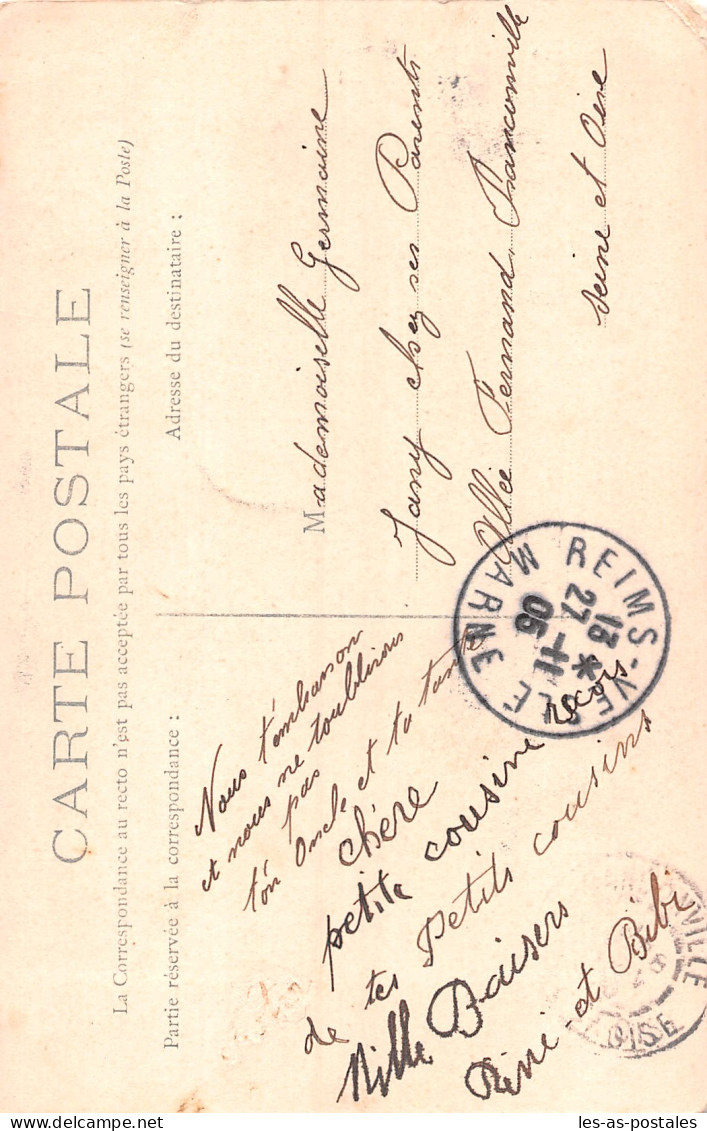 CARTE POSTALE
La Correspondance au recto n'est pas acceptée par tous les pays étrangers (se renseigner à la Poste)
Partie réservée à la correspondance :
Adresse du destinataire :
Nous t'embrassons
et nous ne t'oublirons
pas
ton Oncle et ta tante
chère
petite cousine reçois
de tes Petits cousins
Mille Baisers
Réné et Bibi
Mademoiselle Germaine
Jany chez ses Parents
Allée Fernand, Franconville
Seine et Oise
REIMS-VESLE
13 *
27 -11
05
MARNE
VILLE
OISE
les-as-postales.com